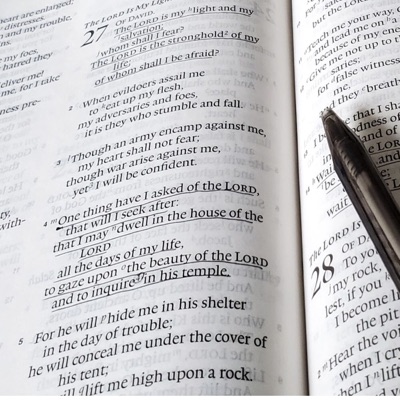 heart are enlarged:
distresses.
and my trouble,
my foes,
hatred they
deliver me!
me, for I take
ness pre-
with-
The Lord Is My Light
OF DAVID.
27 The LORD is my light and my
salvation;
whom shall I fear?
The LORD is the stronghold of my
life;
of whom shall I be afraid?
2 When evildoers assail me
to eat up my flesh,
my adversaries and foes,
it is they who stumble and fall.
3 Though an army encamp against me,
my heart shall not fear;
though war arise against me,
yet I will be confident.
4 One thing have I asked of the LORD,
that will I seek after:
that I may dwell in the house of the
LORD
all the days of my life,
to gaze upon the beauty of the LORD
and to inquire in his temple.
5 For he will hide me in his shelter
in the day of trouble;
he will conceal me under the cover of
his tent;
lift me high upon a rock.
but the
me your way,
and lead me on a
because of my
me not up to
false witness
they breath
that I sha
of
and of
wait
The LORD Is
OF DA
28 To you
my rock,
lest, if you
I become l
the pit
2 Hear the voi
when I cry
when I lift